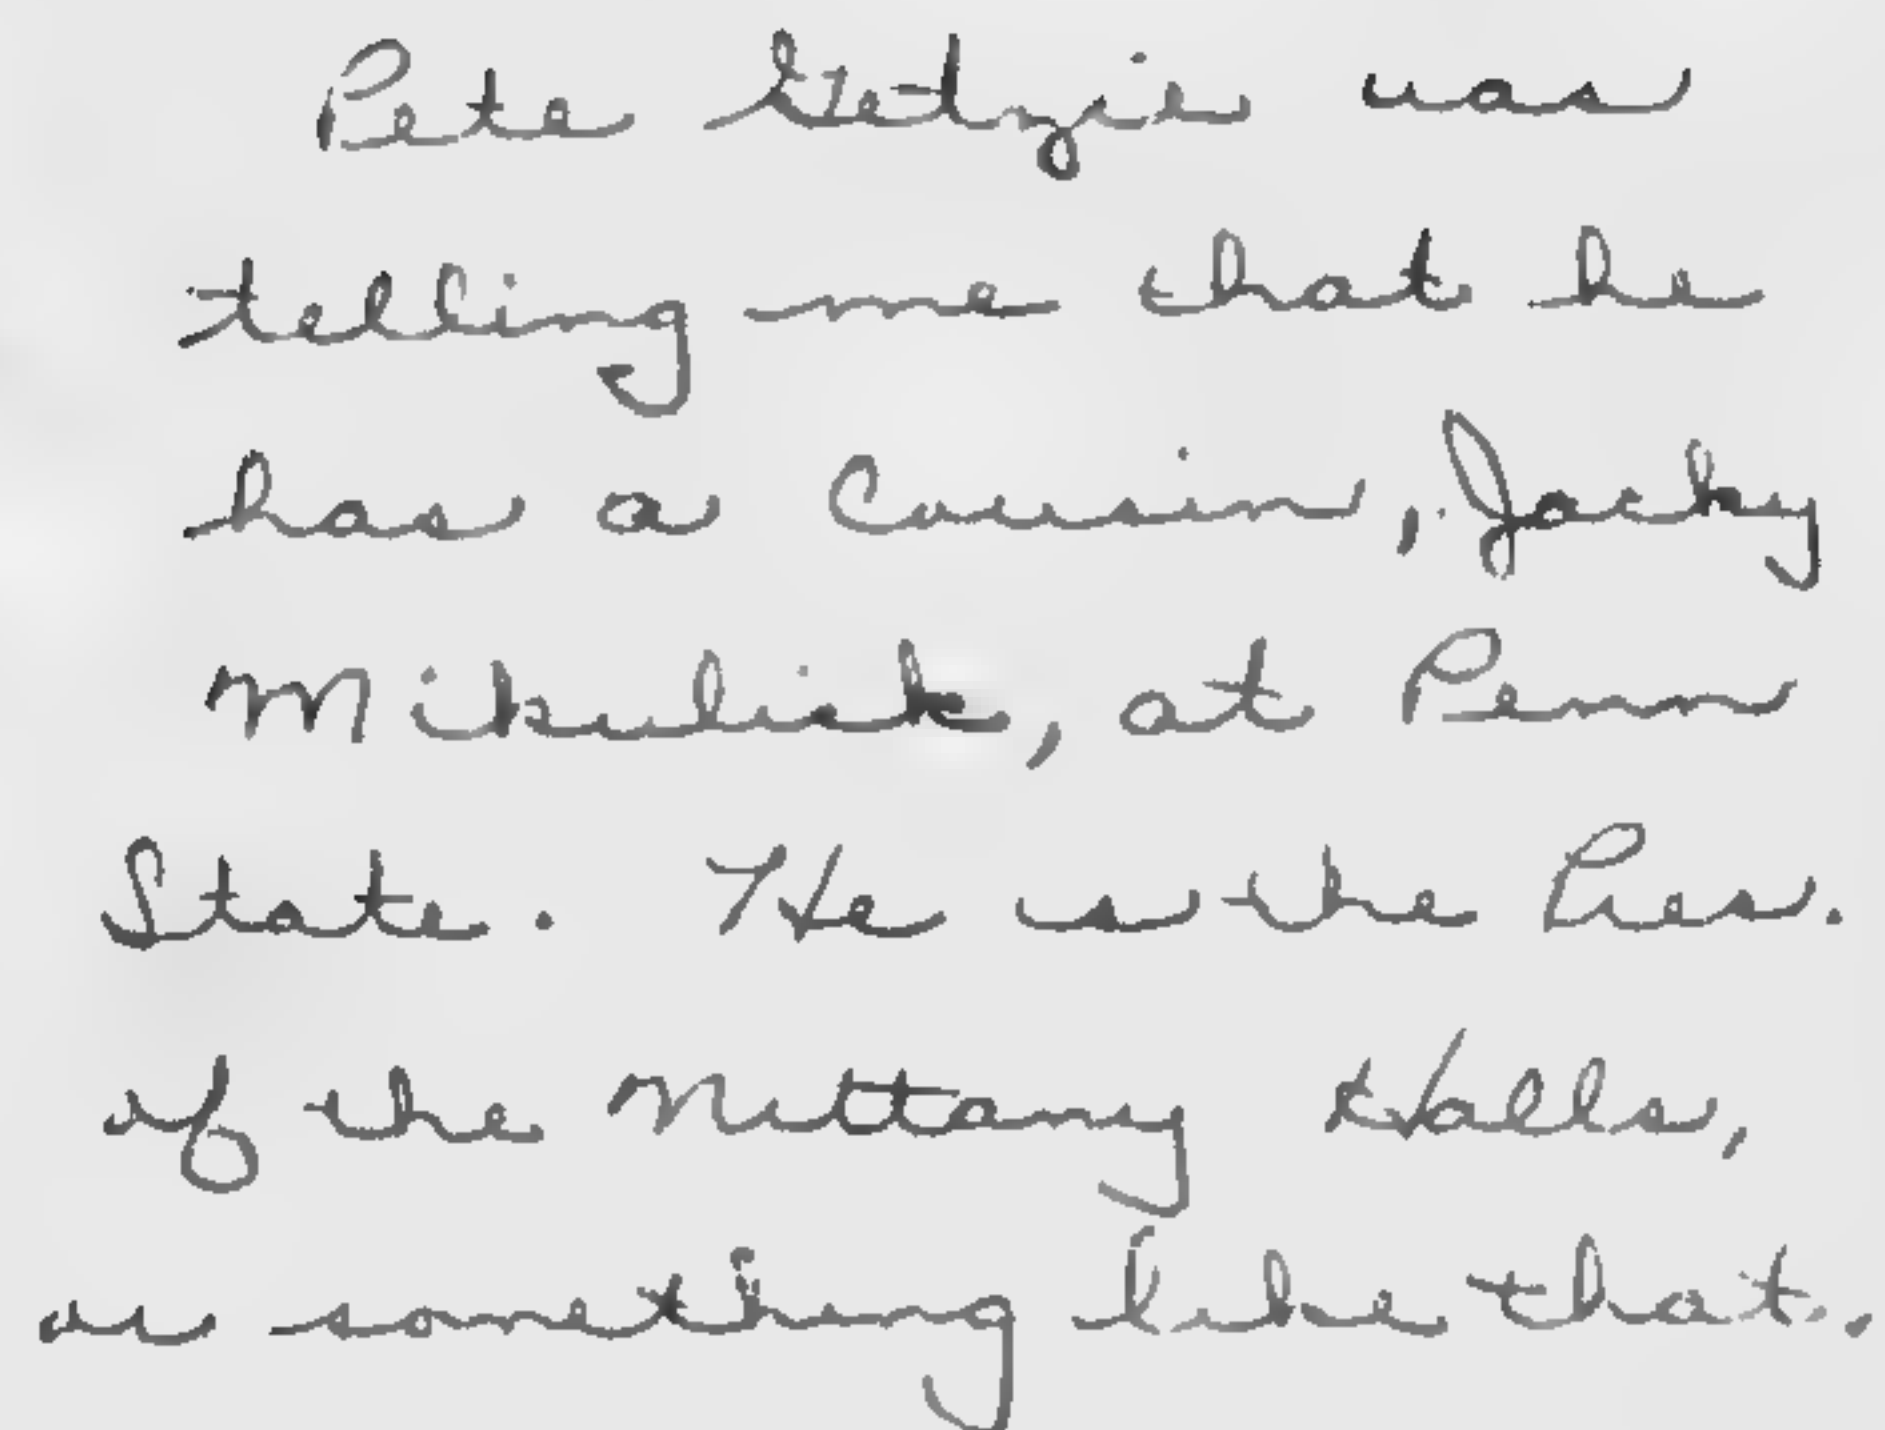 Pete Getzie was
telling me that he
has a Cousin, Jacky
Mikulick, at Penn
State. He is the Pres.
of the Nittany Halls,
or something like that.